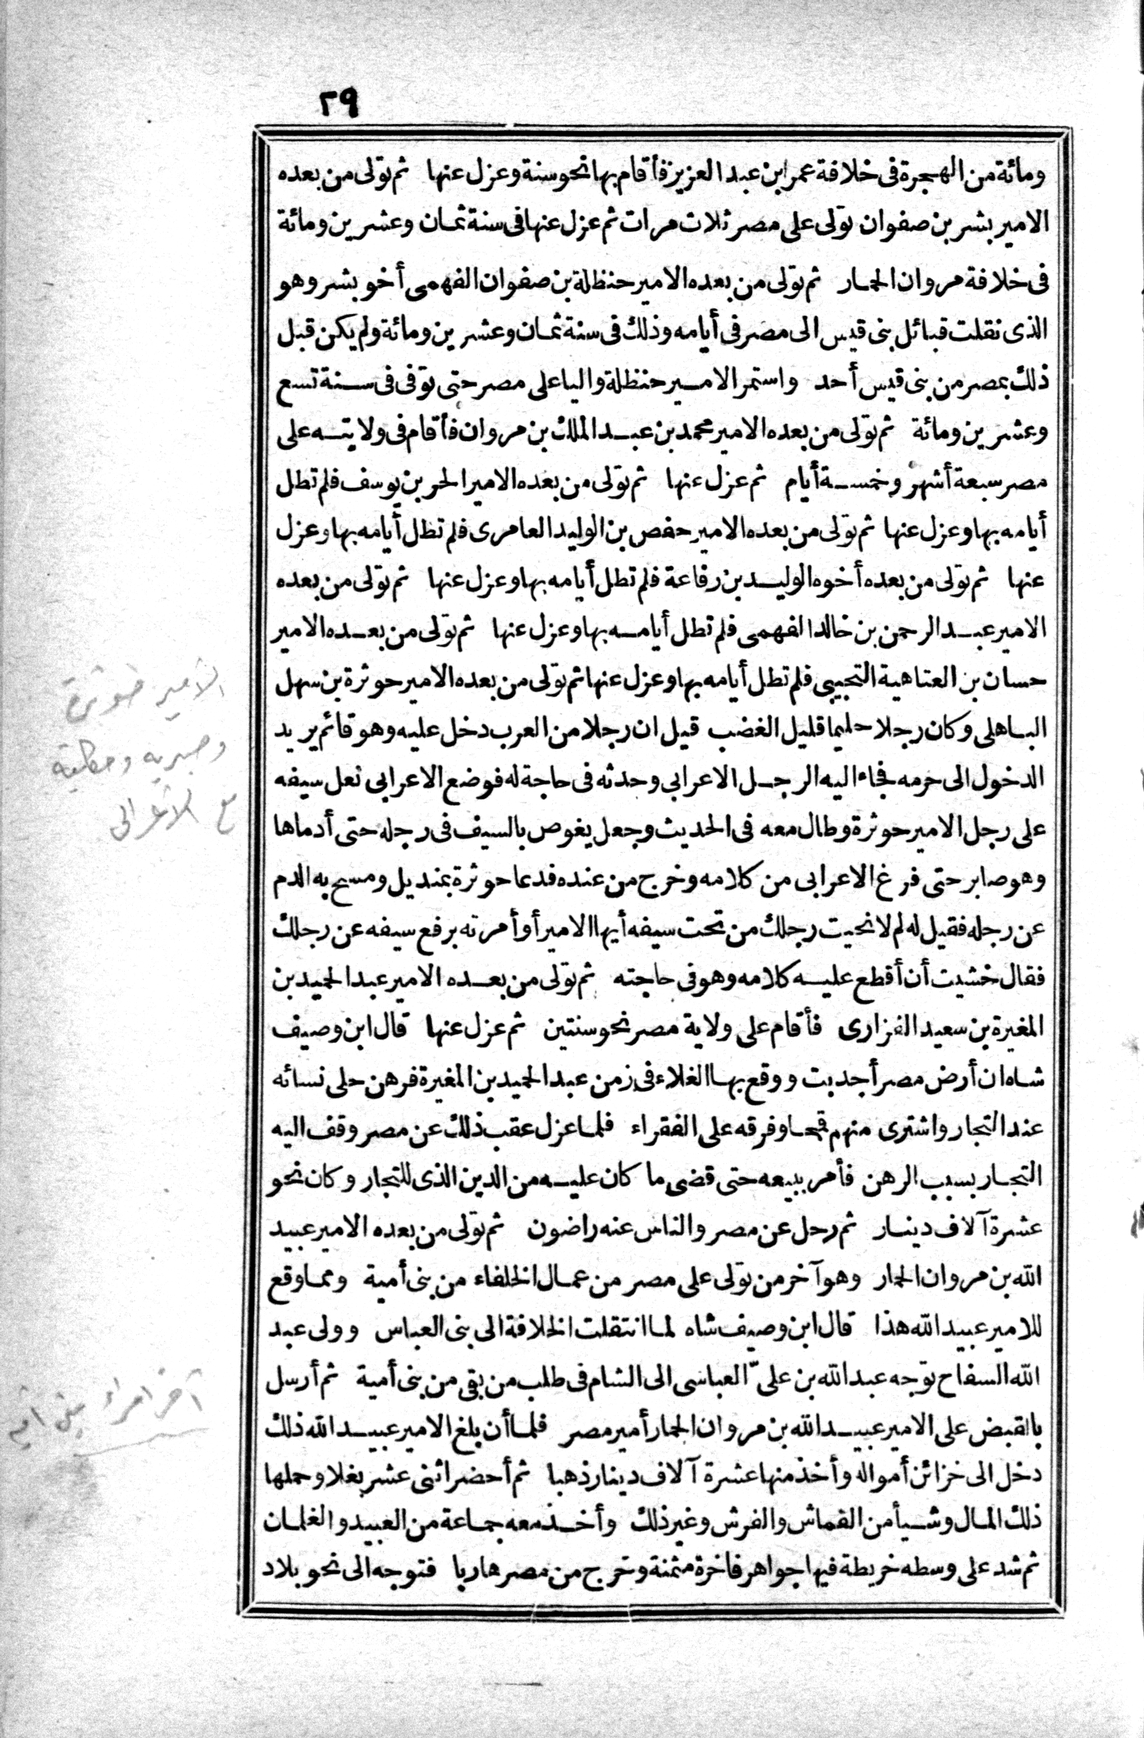 ٢٩
ومائة من الهجرة فى خلافة عمر ابن عبد العزيز فأقام بها نحو سنة وعزل عنها ثم تولى من بعده
الامير بشر بن صفوان تولى على مصر ثلاث مرات ثم عزل عنها فى سنة ثمان وعشرين ومائة
فى خلافة مروان الحمار ثم تولى من بعده الامير حنظلة بن صفوان الفهمى أخو بشر وهو
الذى نقلت قبائل بنى قيس الى مصر فى أيامه وذلك فى سنة ثمان وعشرين ومائة ولم يكن قبل
ذلك بمصر من بنى قيس أحد واستمر الامير حنظلة واليا على مصر حتى توفى فى سنة تسع
وعشرين ومائة ثم تولى من بعده الامير محمد بن عبد الملك بن مروان فأقام فى ولايته على
مصر سبعة أشهر وخمسة أيام ثم عزل عنها ثم تولى من بعده الامير الحر بن يوسف فلم تطل
أيامه بها وعزل عنها ثم تولى من بعده الامير حفص بن الوليد العامرى فلم تطل أيامه بها وعزل
عنها ثم تولى من بعده أخوه الوليد بن رفاعة فلم تطل أيامه بها وعزل عنها ثم تولى من بعده
الامير عبد الرحمن بن خالد الفهمى فلم تطل أيامه بها وعزل عنها ثم تولى من بعده الامير
حسان بن العتاهية التجيبى فلم تطل أيامه بها وعزل عنها ثم تولى من بعده الامير حوثرة بن سهل
الباهلى وكان رجلا حليما قليل الغضب قيل ان رجلا من العرب دخل عليه وهو قائم يريد
الدخول الى حرمه فجاء اليه الرجل الاعرابى وحدثه فى حاجة له فوضع الاعرابى نعل سيفه
على رجل الامير حوثرة وطال معه فى الحديث وجعل يغوص بالسيف فى رجله حتى أدماها
وهو صابر حتى فرغ الاعرابى من كلامه وخرج من عنده فدعا حوثرة بمنديل ومسح به الدم
عن رجله فقيل له لم لا نحيت رجلك من تحت سيفه أيها الامير أو أمرته برفع سيفه عن رجلك
فقال خشيت أن أقطع عليه كلامه وهو فى حاجته ثم تولى من بعده الامير عبد الحميد بن
المغيرة بن سعيد الفزارى فأقام على ولاية مصر نحو سنتين ثم عزل عنها قال ابن وصيف
شاه ان أرض مصر أجدبت ووقع بها الغلاء فى زمن عبد الحميد بن المغيرة فرهن حلى نسائه
عند التجار واشترى منهم قمحا وفرقه على الفقراء فلما عزل عقب ذلك عن مصر وقف اليه
التجار بسبب الرهن فأمر ببيعه حتى قضى ما كان عليه من الدين الذى للتجار وكان نحو
عشرة آلاف دينار ثم رحل عن مصر والناس عنه راضون ثم تولى من بعده الامير عبيد
الله بن مروان الحمار وهو آخر من تولى على مصر من عمال الخلفاء من بنى أمية ومما وقع
للامير عبيد الله هذا قال ابن وصيف شاه لما انتقلت الخلافة الى بنى العباس وولى عبد
الله السفاح توجه عبد الله بن علىّ العباسى الى الشام فى طلب من بقى من بنى أمية ثم أرسل
بالقبض على الامير عبيد الله بن مروان الحمار أمير مصر فلما أن بلغ الامير عبيد الله ذلك
دخل الى خزائن أمواله وأخذ منها عشرة آلاف دينار ذهبا ثم أحضر اثنى عشر بغلا وحملها
ذلك المال وشيأ من القماش والفرش وغير ذلك وأخذ معه جماعة من العبيد والغلمان
ثم شد على وسطه خريطة فيها جواهر فاخرة مثمنة وخرج من مصر هاربا فتوجه الى نحو بلاد
الامير حوثرة
وصبره وحكايته
مع الاعرابى
آخر امراء بنى أمية